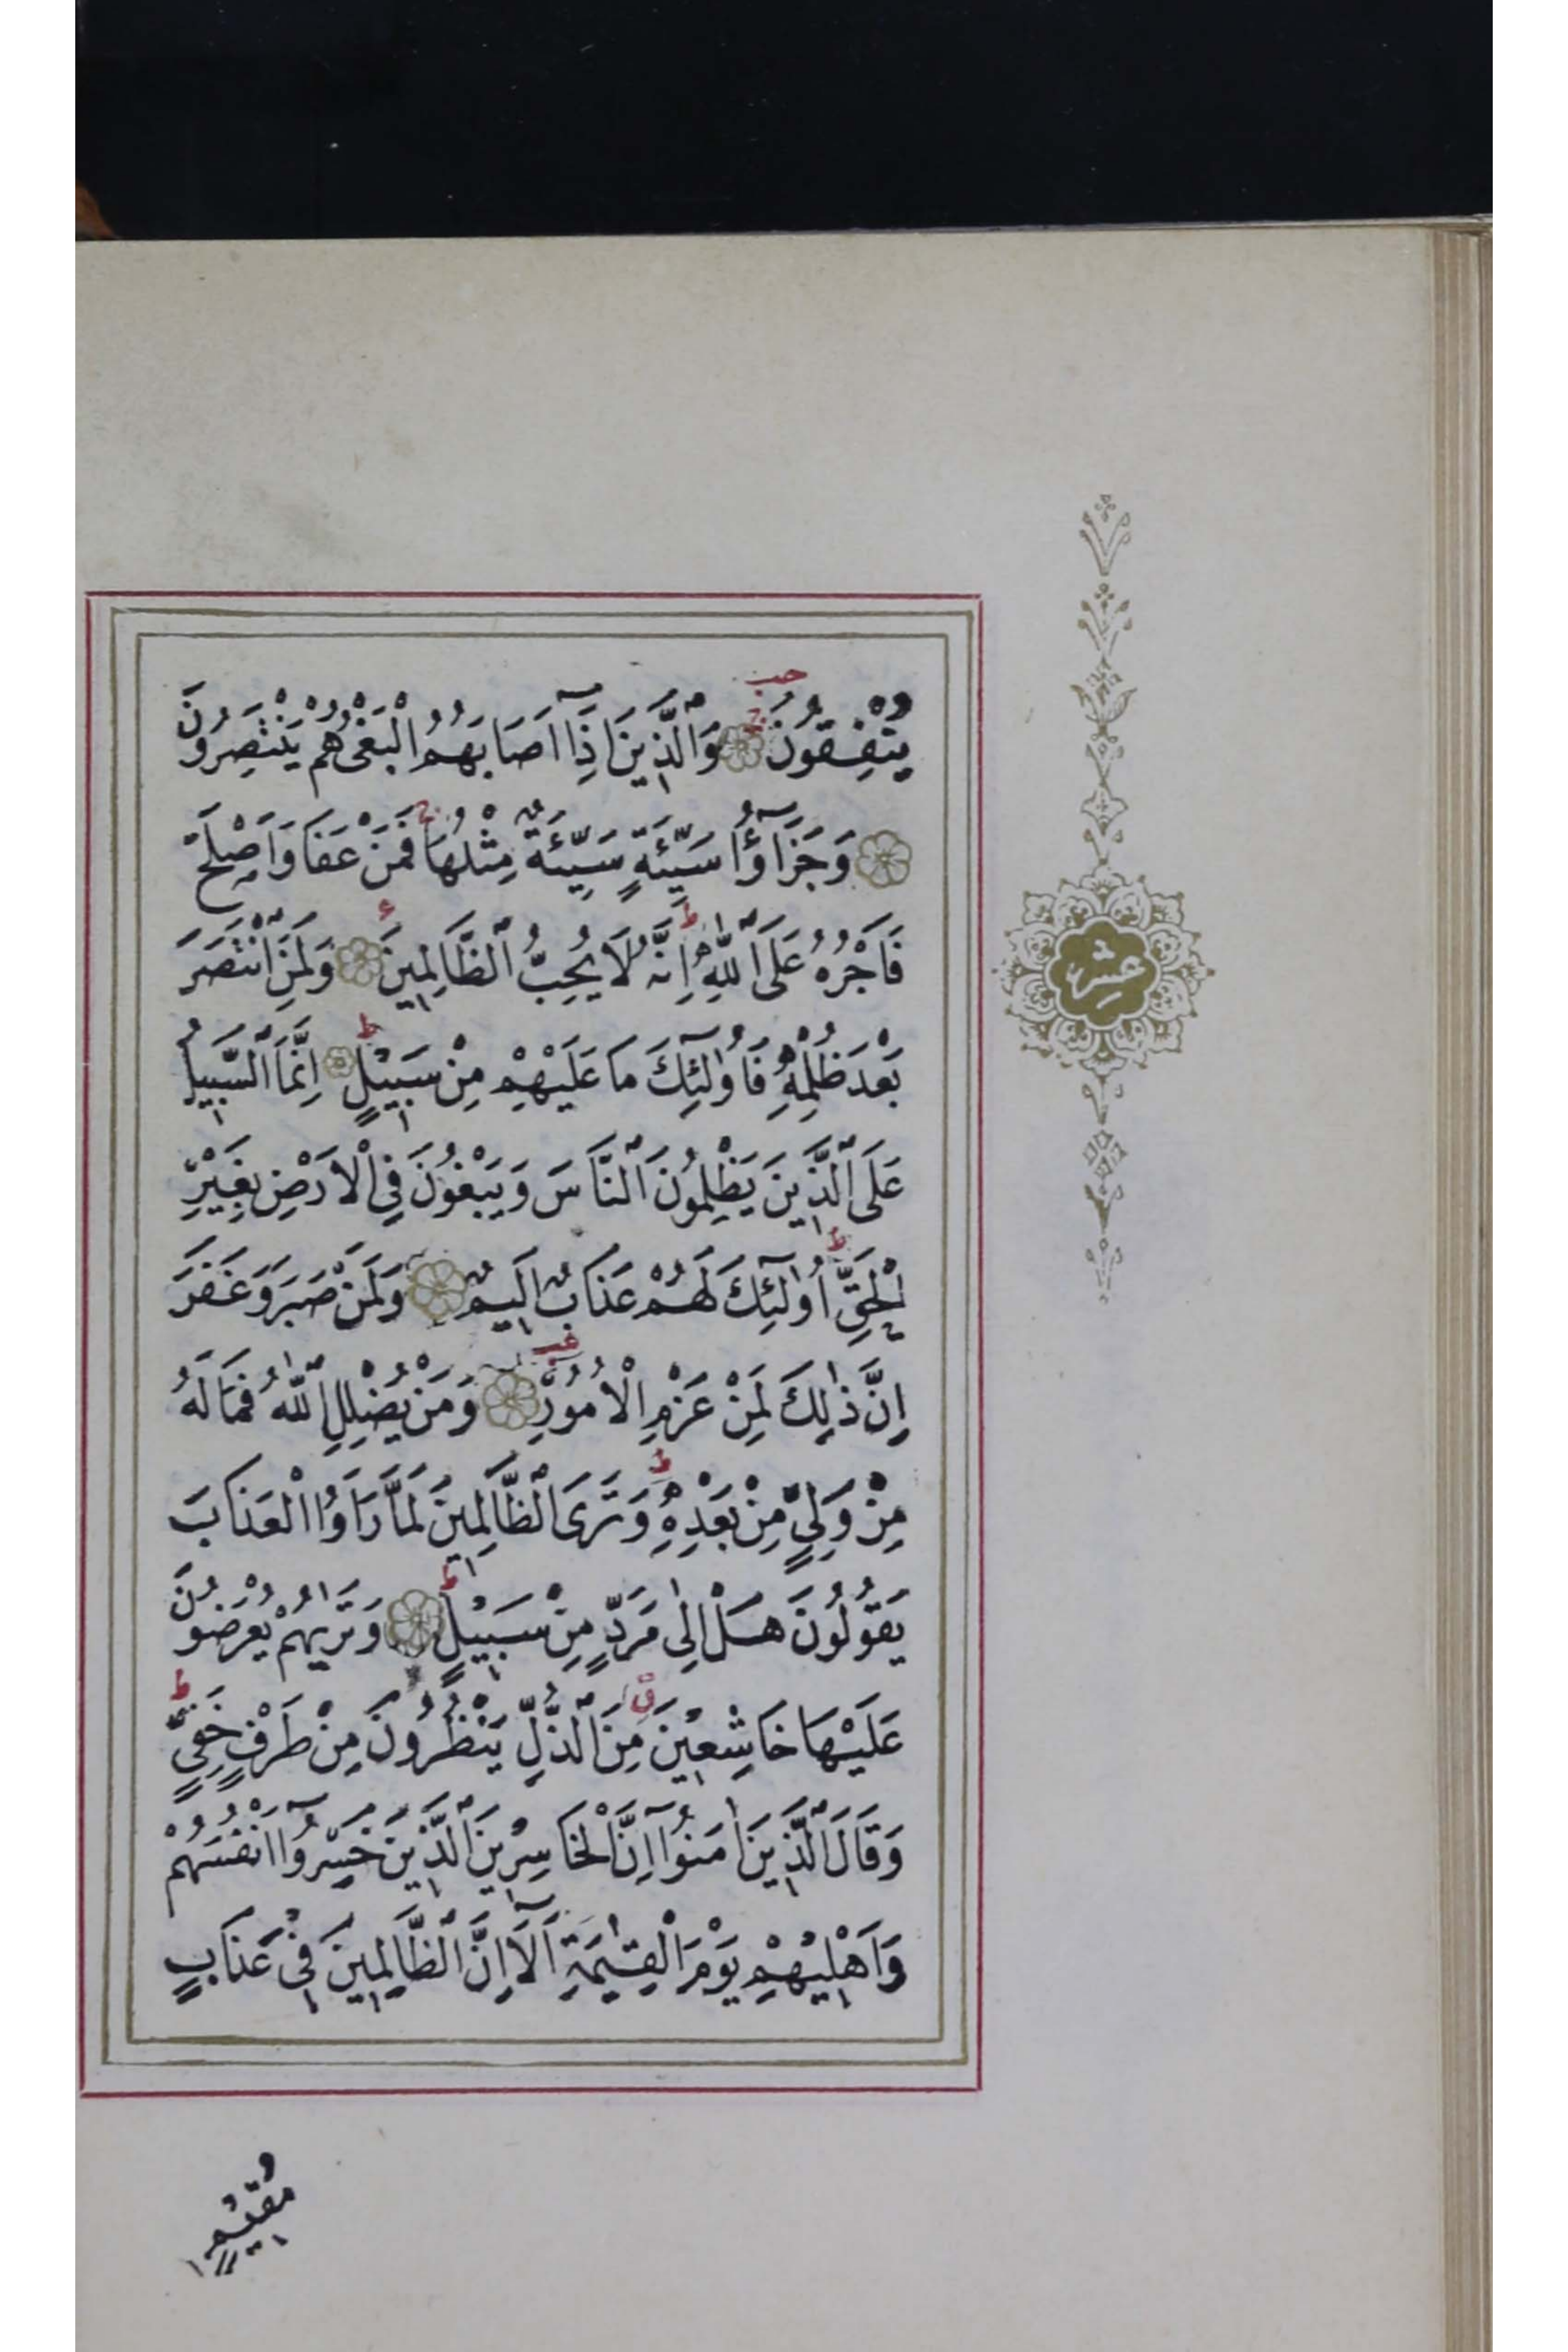 يُنْفِقُونَ ۝ وَالَّذِينَ اِذَآ اَصَابَهُمُ الْبَغْىُ هُمْ يَنْتَصِرُونَ
۝ وَجَزَآؤُا سَيِّئَةٍ سَيِّئَةٌ مِثْلُهَا فَمَنْ عَفَا وَاَصْلَحَ
فَاَجْرُهُ عَلَى اللّٰهِ اِنَّهُ لَا يُحِبُّ الظَّالِمِينَ ۝ وَلَمَنِ انْتَصَرَ
بَعْدَ ظُلْمِهِ فَاُولٰٓئِكَ مَا عَلَيْهِمْ مِنْ سَبِيلٍ ۝ اِنَّمَا السَّبِيلُ
عَلَى الَّذِينَ يَظْلِمُونَ النَّاسَ وَيَبْغُونَ فِى الْاَرْضِ بِغَيْرِ
الْحَقِّ اُولٰٓئِكَ لَهُمْ عَذَابٌ اَلِيمٌ ۝ وَلَمَنْ صَبَرَ وَغَفَرَ
اِنَّ ذٰلِكَ لَمِنْ عَزْمِ الْاُمُورِ ۝ وَمَنْ يُضْلِلِ اللّٰهُ فَمَا لَهُ
مِنْ وَلِىٍّ مِنْ بَعْدِهِ وَتَرَى الظَّالِمِينَ لَمَّا رَاَوُا الْعَذَابَ
يَقُولُونَ هَلْ اِلٰى مَرَدٍّ مِنْ سَبِيلٍ ۝ وَتَرٰيهُمْ يُعْرَضُونَ
عَلَيْهَا خَاشِعِينَ مِنَ الذُّلِّ يَنْظُرُونَ مِنْ طَرْفٍ خَفِىٍّ
وَقَالَ الَّذِينَ اٰمَنُوٓا اِنَّ الْخَاسِرِينَ الَّذِينَ خَسِرُوٓا اَنْفُسَهُمْ
وَاَهْلِيهِمْ يَوْمَ الْقِيٰمَةِ اَلَآ اِنَّ الظَّالِمِينَ فِى عَذَابٍ
مُقِيمٍ
عشر